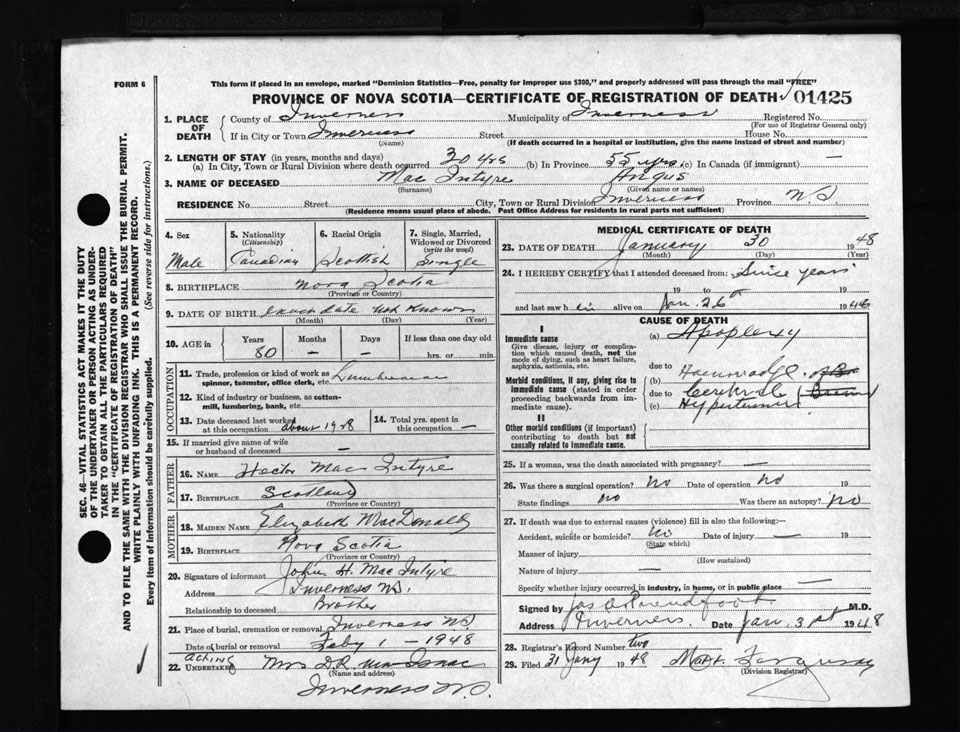 FORM 6
This form if placed in an envelope, marked "Dominion Statistics—Free, penalty for improper use $300," and properly addressed will pass through the mail "FREE"
PROVINCE OF NOVA SCOTIA—CERTIFICATE OF REGISTRATION OF DEATH 01425
1. PLACE OF DEATH County of Inverness Municipality of Inverness Registered No.
(For use of Registrar General only)
If in City or Town Inverness Street House No.
(Name) (If death occurred in a hospital or institution, give the name instead of street and number)
2. LENGTH OF STAY (in years, months and days)
(a) In City, Town or Rural Division where death occurred 30 yrs (b) In Province 55 yrs. (c) In Canada (if immigrant) —
3. NAME OF DECEASED Mac Intyre Angus
(Surname) (Given name or names)
RESIDENCE No. Street City, Town or Rural Division Inverness Province N.S
(Residence means usual place of abode. Post Office Address for residents in rural parts not sufficient)
SEC. 46—VITAL STATISTICS ACT MAKES IT THE DUTY
OF THE UNDERTAKER OR PERSON ACTING AS UNDER-
TAKER TO OBTAIN ALL THE PARTICULARS REQUIRED
IN THE "CERTIFICATE OF REGISTRATION OF DEATH"
AND TO FILE THE SAME WITH THE DIVISION REGISTRAR WHO SHALL ISSUE THE BURIAL PERMIT.
WRITE PLAINLY WITH UNFADING INK. THIS IS A PERMANENT RECORD.
Every item of information should be carefully supplied. (See reverse side for instructions.)
4. Sex 5. Nationality (Citizenship) 6. Racial Origin 7. Single, Married, Widowed or Divorced (write the word)
Male Canadian Scottish Single
8. BIRTHPLACE Nova Scotia
(Province or Country)
9. DATE OF BIRTH Exact date not known
(Month) (Day) (Year)
10. AGE in Years Months Days If less than one day old
80 — — hrs. or min.
OCCUPATION
11. Trade, profession or kind of work as spinner, teamster, office clerk, etc. Lumberman
12. Kind of industry or business, as cotton-mill, lumbering, bank, etc.
13. Date deceased last worked at this occupation about 1928 14. Total yrs. spent in this occupation —
15. If married give name of wife or husband of deceased —
FATHER
16. NAME Hector Mac Intyre
17. BIRTHPLACE Scotland
(Province or Country)
MOTHER
18. MAIDEN NAME Elizabeth MacDonald
19. BIRTHPLACE Nova Scotia
(Province or Country)
20. Signature of informant John H. Mac Intyre
Address Inverness N.S.
Relationship to deceased Brother
21. Place of burial, cremation or removal Inverness N.S.
Date of burial or removal Feby 1 - 1948
22. Acting UNDERTAKER Mrs D.R. Mac Isaac
(Name and address)
Inverness N.S.
MEDICAL CERTIFICATE OF DEATH
23. DATE OF DEATH January 30 1948
(Month) (Day)
24. I HEREBY CERTIFY that I attended deceased from: Since years
19 to 19
and last saw h alive on Jan. 26 19
CAUSE OF DEATH
I
Immediate cause
Give disease, injury or complication which caused death, not the mode of dying, such as heart failure, asphyxia, asthenia, etc.
(a) Apoplexy
due to
Morbid conditions, if any, giving rise to immediate cause (stated in order proceeding backwards from immediate cause).
(b) Haemorrhage
due to Cerebral
(c) Hypertension
II
Other morbid conditions (if important) contributing to death but not causally related to immediate cause.
25. If a woman, was the death associated with pregnancy? —
26. Was there a surgical operation? No Date of operation no 19
State findings no Was there an autopsy? No
27. If death was due to external causes (violence) fill in also the following:—
Accident, suicide or homicide? No Date of injury — 19
(State which)
Manner of injury
(How sustained)
Nature of injury —
Specify whether injury occurred in industry, in home, or in public place —
Signed by Jas A Proudfoot M.D.
Address Inverness Date Jan. 31st 1948
28. Registrar's Record Number two
29. Filed 31 Jany 1948 Ferguson
(Division Registrar)